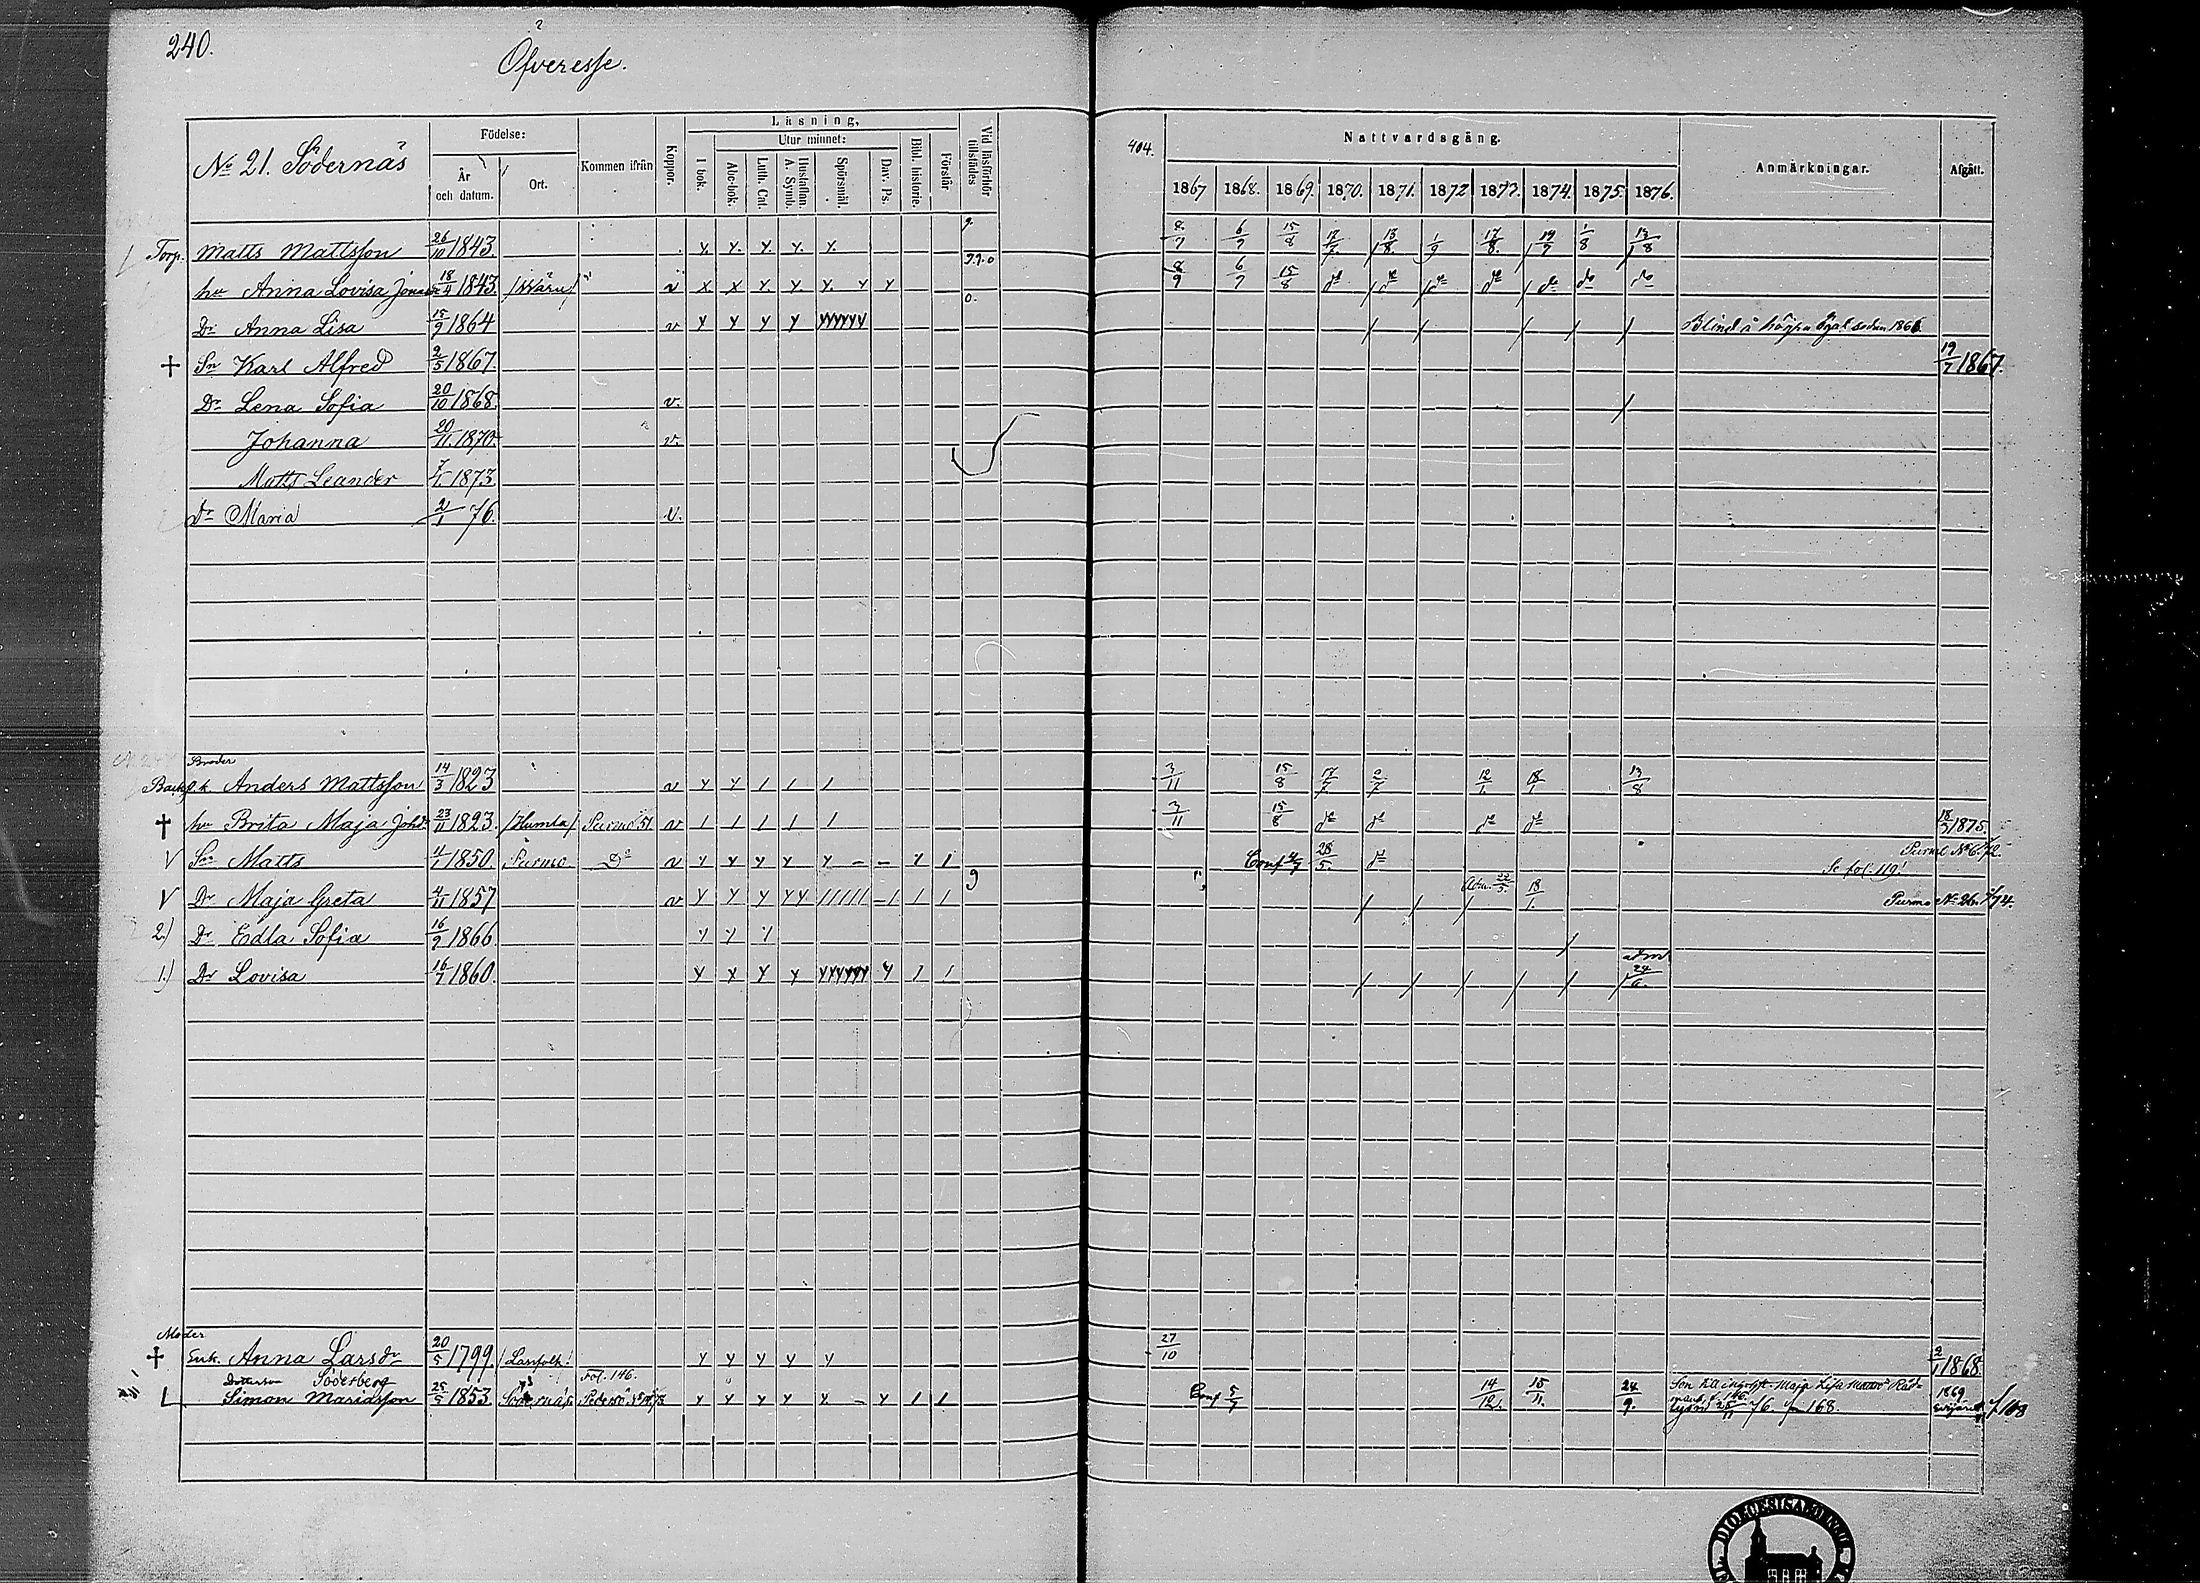 240.
Öfveresse.
No 21. Södernäs
Födelse:
År och datum.
Ort.
Kommen ifrån
Koppor.
Läsning,
I bok.
Utur minnet:
Abc-bok.
Luth. Cat.
Hustaflan. A. Symb.
Spörsmål.
Dav. Ps.
Bibl. historie.
Förstår
Vid läsförhör tillstädes
404.
Nattvardsgång.
1867 1868. 1869. 1870. 1871. 1872 1873. 1874. 1875. 1876.
Anmärkningar.
Afgått.
Torp. Matts Mattsson 26/10 1843. y. y. y. y. y. 6/7 15/8 13/8 1/9 17/8 19/7 1/8 13/8
hu Anna Lovisa 18/4 1843 v x x y. y. y. y y 8/9 6/7 15/8 do do do do do do do
Dr Anna Lisa 15/9 1864 v y y y y yyyyyy Blind å högra ögat sedan 1866
† Sn Karl Alfred 9/5 1867. 19/7 1867.
Dr Lena Sofia 20/10 1868. v.
Johanna 20/11 1870. v.
Matts Leander 1873
Dr Maria 2/1 76. v.
Broder
Anders Mattsson 14/3 1823 v y y / / / 3/11 15/8 17/7 2/7 18/1 13/8
† hu Brita Maja Johdr 23/11 1823. /Humla/ Purmo 51 v / / / / / 3/11 15/8 do do do do 18/3 1875.
V Sn Matts 4/1 1850. Purmo Do v y y y y y - - 1 1 Conf 28/5. do Purmo No 6. 72.
Se fol. 119!
V Dr Maja Greta 4/11 1857 v y y y yy ///// -1 1 1 9 Adm. 22/5. 18/1. Purmo No 26. 74.
2.) Dr Edla Sofia 16/9 1866 y y y
1.) Dr Lovisa 16/7 1860. y y y y yyyyyy y 1 1 adm 24/6.
Moder
† Enk. Anna Larsdr 20/5 1799. y y y y y 27/10 2/1 1868.
Dotterson Söderberg Fol. 146.
Simon Mariasson 25/5 1853. Södernäs y y y y y. - y 1 1 Conf 5/7 14/12. 15/11. 24/9. 76. 168.
1869